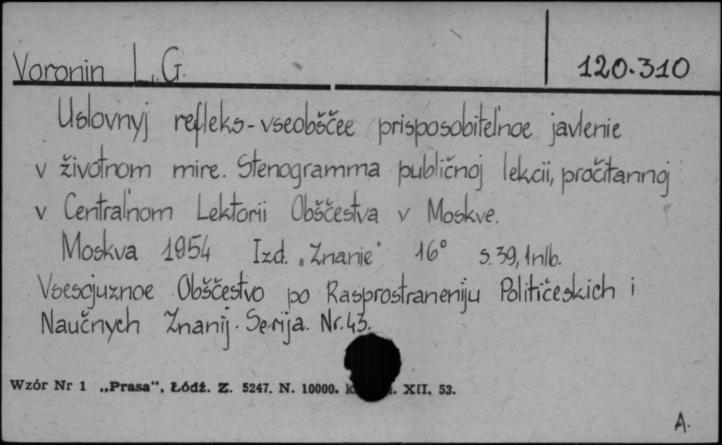 Voronin L.G.
120.310
Uslovnyj refleks - vseobščee prisposobitel'noe javlenie
v životnom mire. Stenogramma publičnoj lekcii, pročitannoj
v Central'nom Lektorii Obščestva v Moskve.
Moskva 1954 Izd. „Znanie" 16° s. 39, 1 nlb.
Vsesojuznoe Obščestvo po Rasprostraneniju Političeskich i
Naučnych Znanij. Serija. Nr. 43.
Wzór Nr 1 „Prasa", Łódź. Z. 5247. N. 10000. XII. 53.
A.